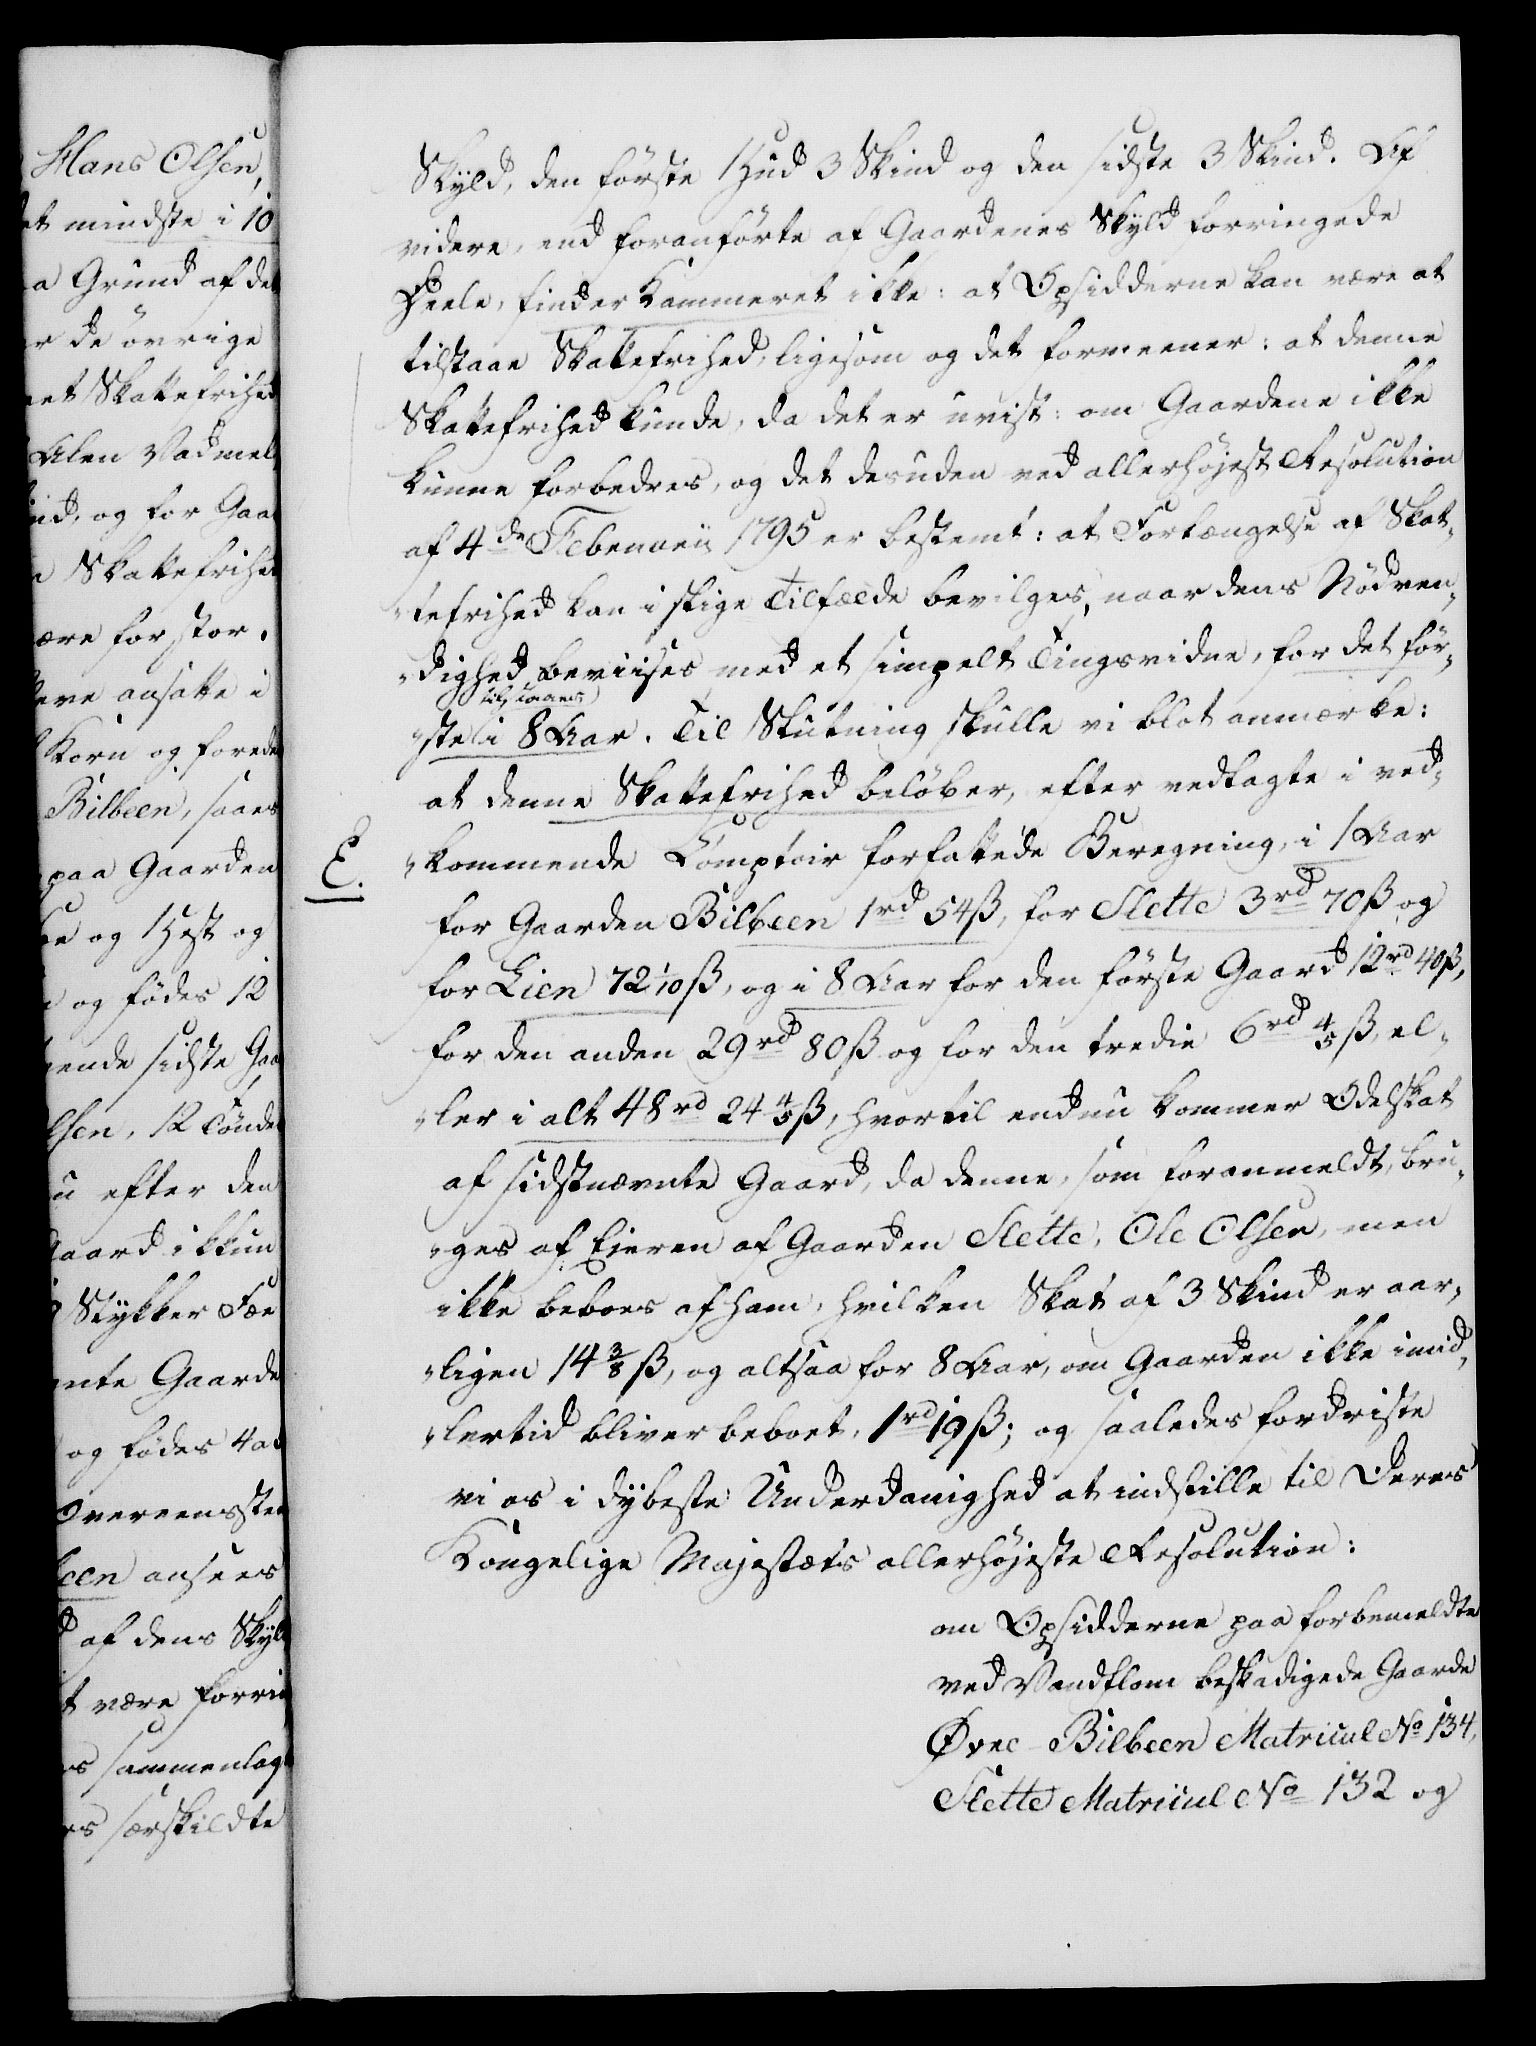 Hans Olsen,
et mindste i 10
a Grund af det
er de övrige
et Skattefrihed
Alen Vadmel
ind, og for Gaar
n Skattefrihed
ære for stor.
ere ansatte i
Korn og forede
Bilbeen, saaes
paa Gaarden
og 1 Hest og
og fødes 12
ende sidste Gaa
lsen, 12 Tönder
u efter den
Gaard ikkun
Stykker Fæe
nte Gaarde
og födes 4
Overeensstem
een ansees
d af dens Skyld
t være forrin
es sammenlagt
es særskildte
Skyld, den förste 1 Hud 3 Skind og den sidste 3 Skind. Af
videre, end foranförte af Gaardenes Skyld forringede
Deele, finder Kammeret ikke: at Opsidderne kan være at
tilstaae Skattefrihed, ligesom og det formeener: at denne
Skattefrihed kunde, da det er uvist: om Gaardene ikke
kunne forbedres, og det desuden ved allerhöjest Resolution
af 4de Februarii 1795 er bestemt: at Forlængelse af Skat-
tefrihed kan i slige Tilfælde bevilges, naar dens Nödven-
dighed beviises med et simpelt Tingsvidne, for det för-
tilstaaes
ste i 8 Aar. Til Slutning skulle vi blot anmærke:
at denne Skattefrihed belöber, efter vedlagte i ved-
E. kommende Comptoir forfattede Beregning, i 1 Aar
for Gaarden Bilbeen 1rd 54ß, for Slette 3rd 70ß og
for Lien 72 1/10ß, og i 8 Aar for den förste Gaard 12rd 48ß,
for den anden 29rd 80ß og for den tredie 6rd 4/5ß, el-
ler i alt 48rd 24 4/5ß, hvortil endnu kommer Odelskat
af sidstnævnte Gaard, da denne, som foranmeldt, bru-
ges af Eieren af Gaarden Slette, Ole Olsen, men
ikke beboes af ham, hvilken Skat af 3 Skind er aar-
ligen 14 3/8 ß, og altsaa for 8 Aar, om Gaarden ikke imid-
lertid bliver beboet, 1rd 19ß; og saaledes fordriste
vi os i dybeste Underdanighed at indstille til Deres
Kongelige Majestæts allerhöjeste Resolution:
om Opsidderne paa forbemeldte
ved Vandflom beskadigede Gaarde
Øvre-Bilbeen Matricul No 134,
Slette Matricul No 132 og